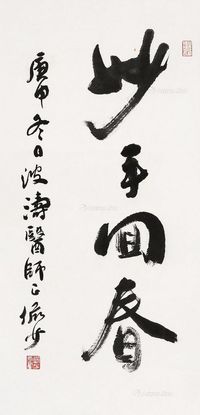 妙手回春
庚申冬日波濤醫師正 儗少